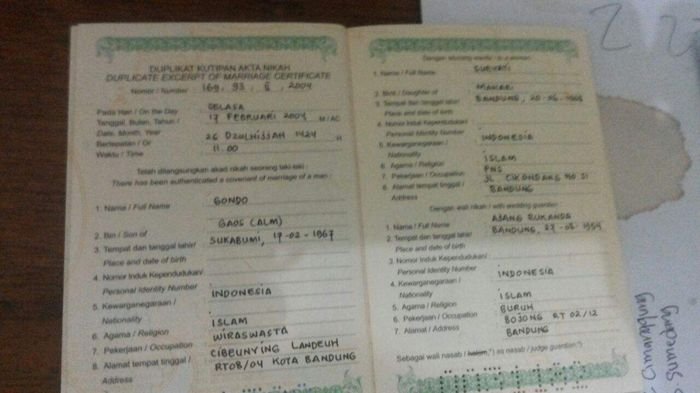 DUPLIKAT KUTIPAN AKTA NIKAH
DUPLICATE EXCERPT OF MARRIAGE CERTIFICATE
Nomor / Number 169, 93, II, 2004
Pada Hari / On the Day SELASA
Tanggal, Bulan, Tahun / 17 FEBRUARI 2004 M / AC
Date, Month, Year
Bertepatan / Or 26 DZULHIJJAH 1424 H
Waktu / Time 11.00
Telah dilangsungkan akad nikah seorang laki-laki :
There has been authenticated a covenant of marriage of a man :
1. Name / Full Name GONDO
GAOS (ALM)
2. Bin / Son of
3. Tempat dan tanggal lahir/ SUKABUMI, 17-02-1967
Place and date of birth
4. Nomor Induk Kependudukan/
Personal Identity Number
5. Kewarganegaraan / INDONESIA
Nationality
6. Agama / Religion ISLAM
7. Pekerjaan / Occupation WIRASWASTA
8. Alamat tempat tinggal / CIBEUNYING LANDEUH
Address RT08/04 KOTA BANDUNG
Dengan seorang wanita / to a woman
1. Name / Full Name SURYATI
2. Binti / Daughter of MAKARI
3. Tempat dan tanggal lahir/ BANDUNG,
Place and date of birth
4. Nomor Induk Kependudukan/
Personal Identity Number
5. Kewarganegaraan / INDONESIA
Nationality
6. Agama / Religion ISLAM
7. Pekerjaan / Occupation PNS
8. Alamat tempat tinggal / JL. CIKONDANG NO 51
Address BANDUNG
Dengan wali nikah / with wedding guardian
1. Name / Full Name AJANG RUKANDA
2. Tempat dan tanggal lahir/ BANDUNG,
Place and date of birth
3. Nomor Induk Kependudukan/
Personal Identity Number
4. Kewarganegaraan / INDONESIA
Nationality
5. Agama / Religion ISLAM
6. Pekerjaan / Occupation BURUH
7. Alamat / Address BOJONG RT 02/12
BANDUNG
Sebagai wali nasab / hakim,*) as nasab / judge guardian.*)